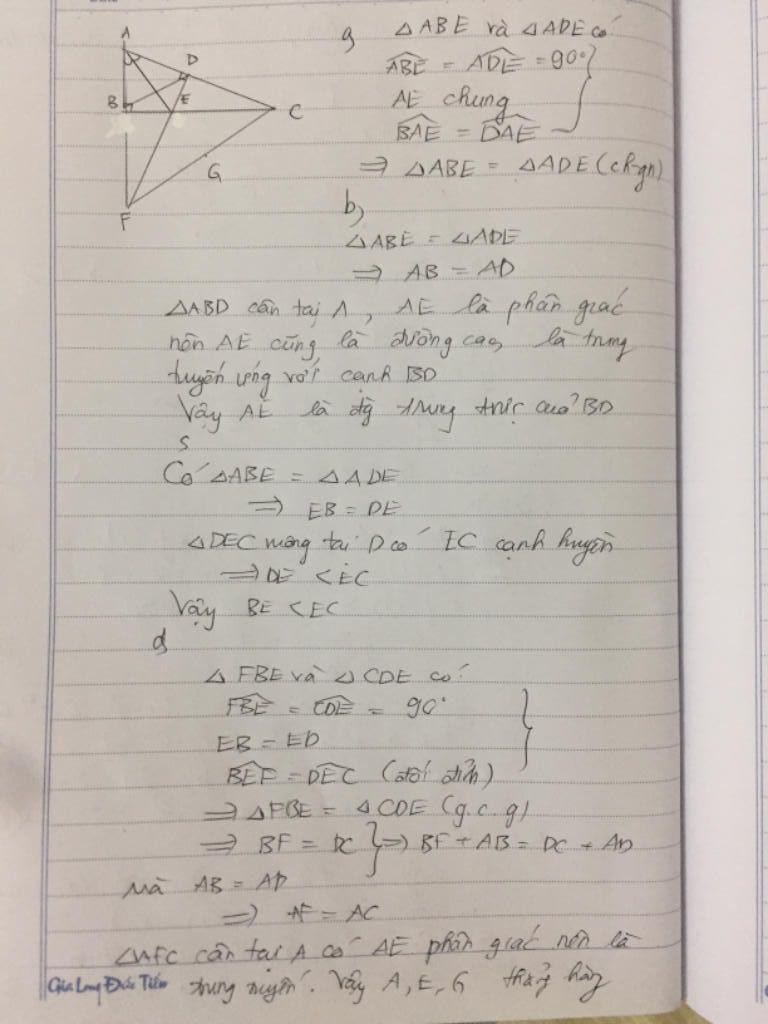 A
D
B
E
C
G
F
a) △ABE và △ADE có
ABE = ADE = 90°
AE chung
BAE = DAE
⇒ △ABE = △ADE (ch-gn)
b)
△ABE = △ADE
⇒ AB = AD
△ABD cân tại A, AE là phân giác
nên AE cũng là đường cao, là trung
tuyến ứng với cạnh BD
Vậy AE là đg trung trực của BD
Có △ABE = △ADE
⇒ EB = DE
△DEC vuông tại D có EC cạnh huyền
⇒ DE < EC
Vậy BE < EC
d
△ FBE và △ CDE có:
FBE = CDE = 90°
EB = ED
BEF = DEC (đối đỉnh)
⇒ △FBE = △CDE (g.c.g)
⇒ BF = DC ⇒ BF + AB = DC + AD
mà AB = AD
⇒ AF = AC
△AFC cân tại A có AE phân giác nên là
trung tuyến. Vậy A, E, G thẳng hàng
Gia Long Đức Tiến